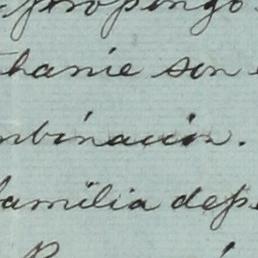 propongo
thanie son
mbinación.
familia depe